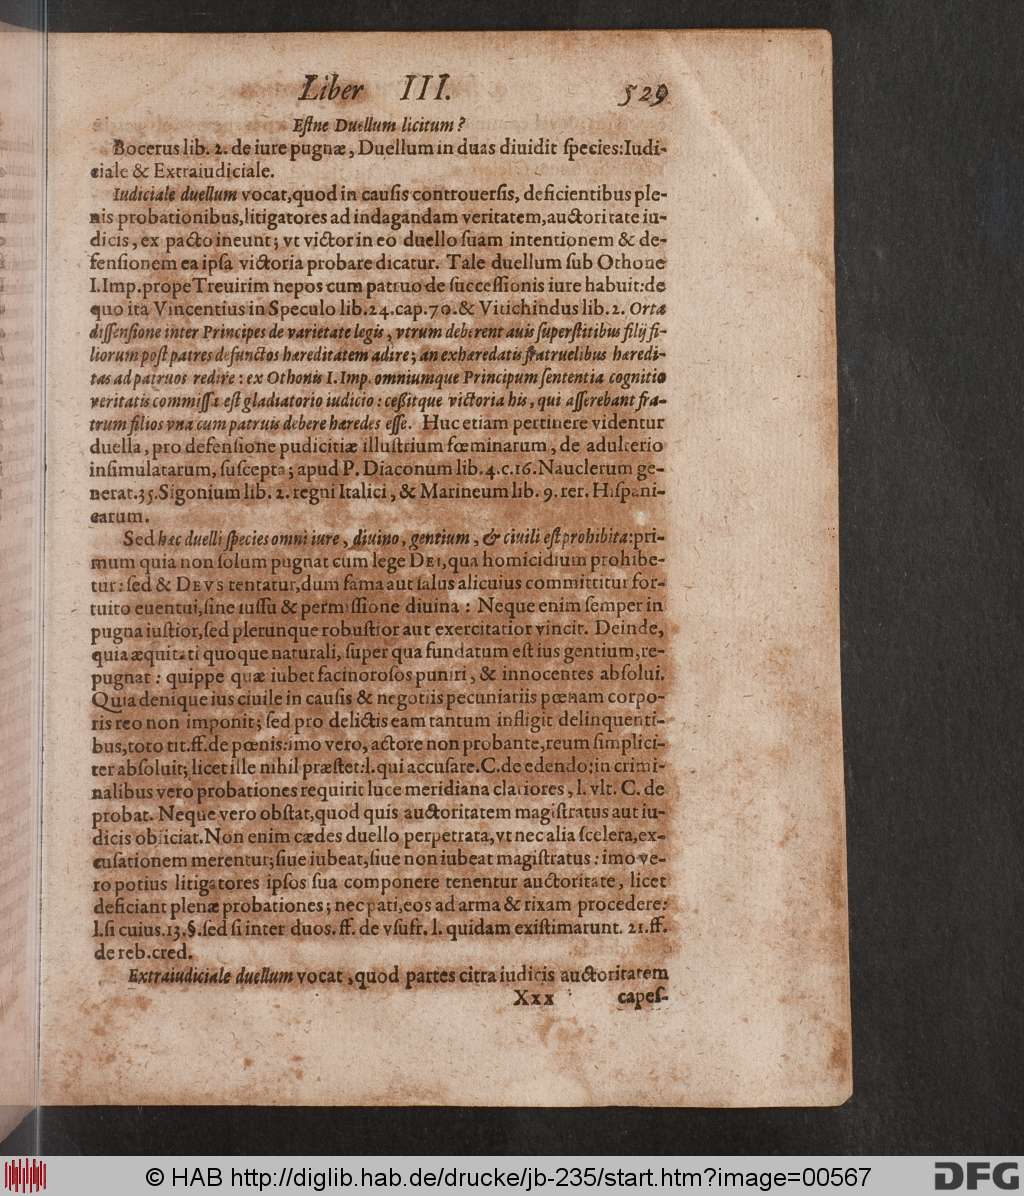 Liber III. 529
Eſtne Duellum licitum?
Bocerus lib. 2. de iure pugnæ, Duellum in duas diuidit ſpecies: Iudi-
ciale & Extraiudiciale.
Iudiciale duellum vocat, quod in cauſis controuerſis, deficientibus ple-
nis probationibus, litigatores ad indagandam veritatem, auctoritate iu-
dicis, ex pacto ineunt; vt victor in eo duello ſuam intentionem & de-
fenſionem ea ipſa victoria probare dicatur. Tale duellum ſub Othone
I. Imp. prope Treuirim nepos cum patruo de ſucceſſionis iure habuit: de
quo ita Vincentius in Speculo lib. 24. cap. 70. & Vitichindus lib. 2. Orta
diſſenſione inter Principes de varietate legis, vtrum deberent auis ſuperſtitibus filij fi-
liorum poſt patres defunctos hæreditatem adire; an exhæredatis fratruelibus hæredi-
tas ad patruos redire: ex Othonis I. Imp. omniumque Principum ſententia cognitio
veritatis commiſſa eſt gladiatorio iudicio: ceßitque victoria his, qui aſſerebant fra-
trum filios vna cum patruis debere hæredes eſſe. Huc etiam pertinere videntur
duella, pro defenſione pudicitiæ illuſtrium fœminarum, de adulterio
inſimulatarum, ſuſcepta; apud P. Diaconum lib. 4. c. 16. Nauclerum ge-
nerat. 35. Sigonium lib. 2. regni Italici, & Marineum lib. 9. rer. Hiſpani-
carum.
Sed hæc duelli ſpecies omni iure, diuino, gentium, & ciuili eſt prohibita: pri-
mum quia non ſolum pugnat cum lege DEI, qua homicidium prohibe-
tur: ſed & DEVS tentatur, dum fama aut ſalus alicuius committitur for-
tuito euentui, ſine iuſſu & permiſſione diuina: Neque enim ſemper in
pugna iuſtior, ſed plerunque robuſtior aut exercitatior vincit. Deinde,
quia æquitati quoque naturali, ſuper qua fundatum eſt ius gentium, re-
pugnat: quippe quæ iubet facinoroſos puniri, & innocentes abſolui.
Quia denique ius ciuile in cauſis & negotiis pecuniariis pœnam corpo-
ris reo non imponit; ſed pro delictis eam tantum infligit delinquenti-
bus, toto tit. ff. de pœnis: imo vero, actore non probante, reum ſimplici-
ter abſoluit; licet ille nihil præſtet: l. qui accuſare. C. de edendo: in crimi-
nalibus vero probationes requirit luce meridiana clariores, l. vlt. C. de
probat. Neque vero obſtat, quod quis auctoritatem magiſtratus aut iu-
dicis obiiciat. Non enim cædes duello perpetrata, vt nec alia ſcelera, ex-
cuſationem merentur; ſiue iubeat, ſiue non iubeat magiſtratus: imo ve-
ro potius litigatores ipſos ſua componere tenentur auctoritate, licet
deficiant plenæ probationes; nec pati, eos ad arma & rixam procedere:
l. ſi cuius. 13. §. ſed ſi inter duos. ff. de vſufr. l. quidam exiſtimarunt. 21. ff.
de reb. cred.
Extraiudiciale duellum vocat, quod partes citra iudicis auctoritatem
Xxx capeſ-
© HAB http://diglib.hab.de/drucke/jb-235/start.htm?image=00567
DFG